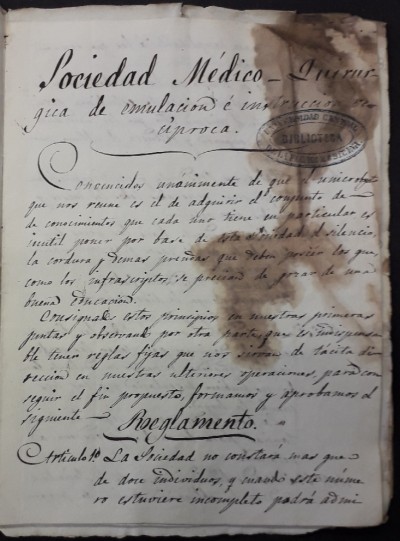 Sociedad Médico-Quirur-
gica de emulacion é instruccion re-
ciproca.
UNIVERSIDAD CENTRAL
BIBLIOTECA
Concencidos unánimemente de que el unico objeto
que nos reune es el de adquirir el conjunto de
de conocimientos que cada uno tiene en particular es
inutil poner por base de esta Sociedad el silencio,
la cordura y demas prendas que deben poseer los que,
como los infrascriptos, se precian de gozar de una
buena educacion.
Consignados estos principios en nuestras primeras
juntas y observando por otra parte que es indispensa-
ble tener reglas fijas que nos sirvan de tácita di-
reccion en nuestras ulteriores operaciones, para con-
seguir el fin propuesto, formamos y aprobamos el
siguiente
Reglamento.
Articulo 1º La Sociedad no constará mas que
de doce individuos, y cuando este núme
ro estuviere incompleto podrá admi